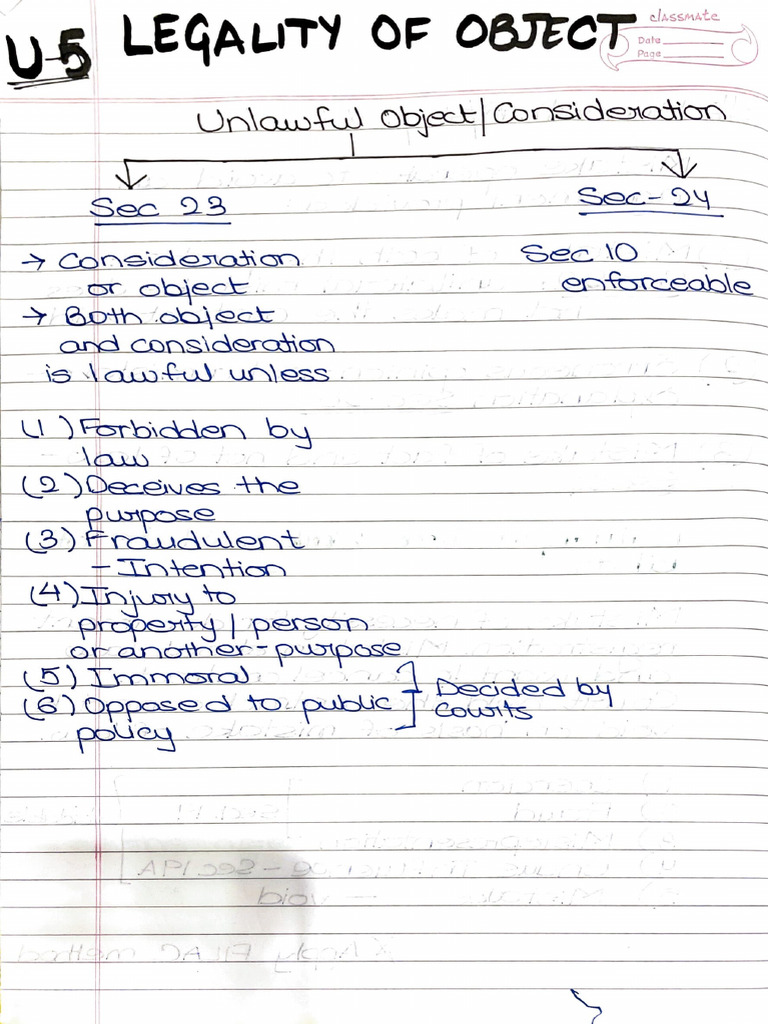 U-5 LEGALITY OF OBJECT
classmate
Date
Page
Unlawful Object/Consideration
Sec 23
Sec-24
→ Consideration
or object
→ Both object
and consideration
is lawful unless
Sec 10
enforceable
(1) Forbidden by
law
(2) Deceives the
purpose
(3) Fraudulent
- Intention
(4) Injury to
property / person
or another-purpose
(5) Immoral
(6) Opposed to public
policy
Decided by
courts